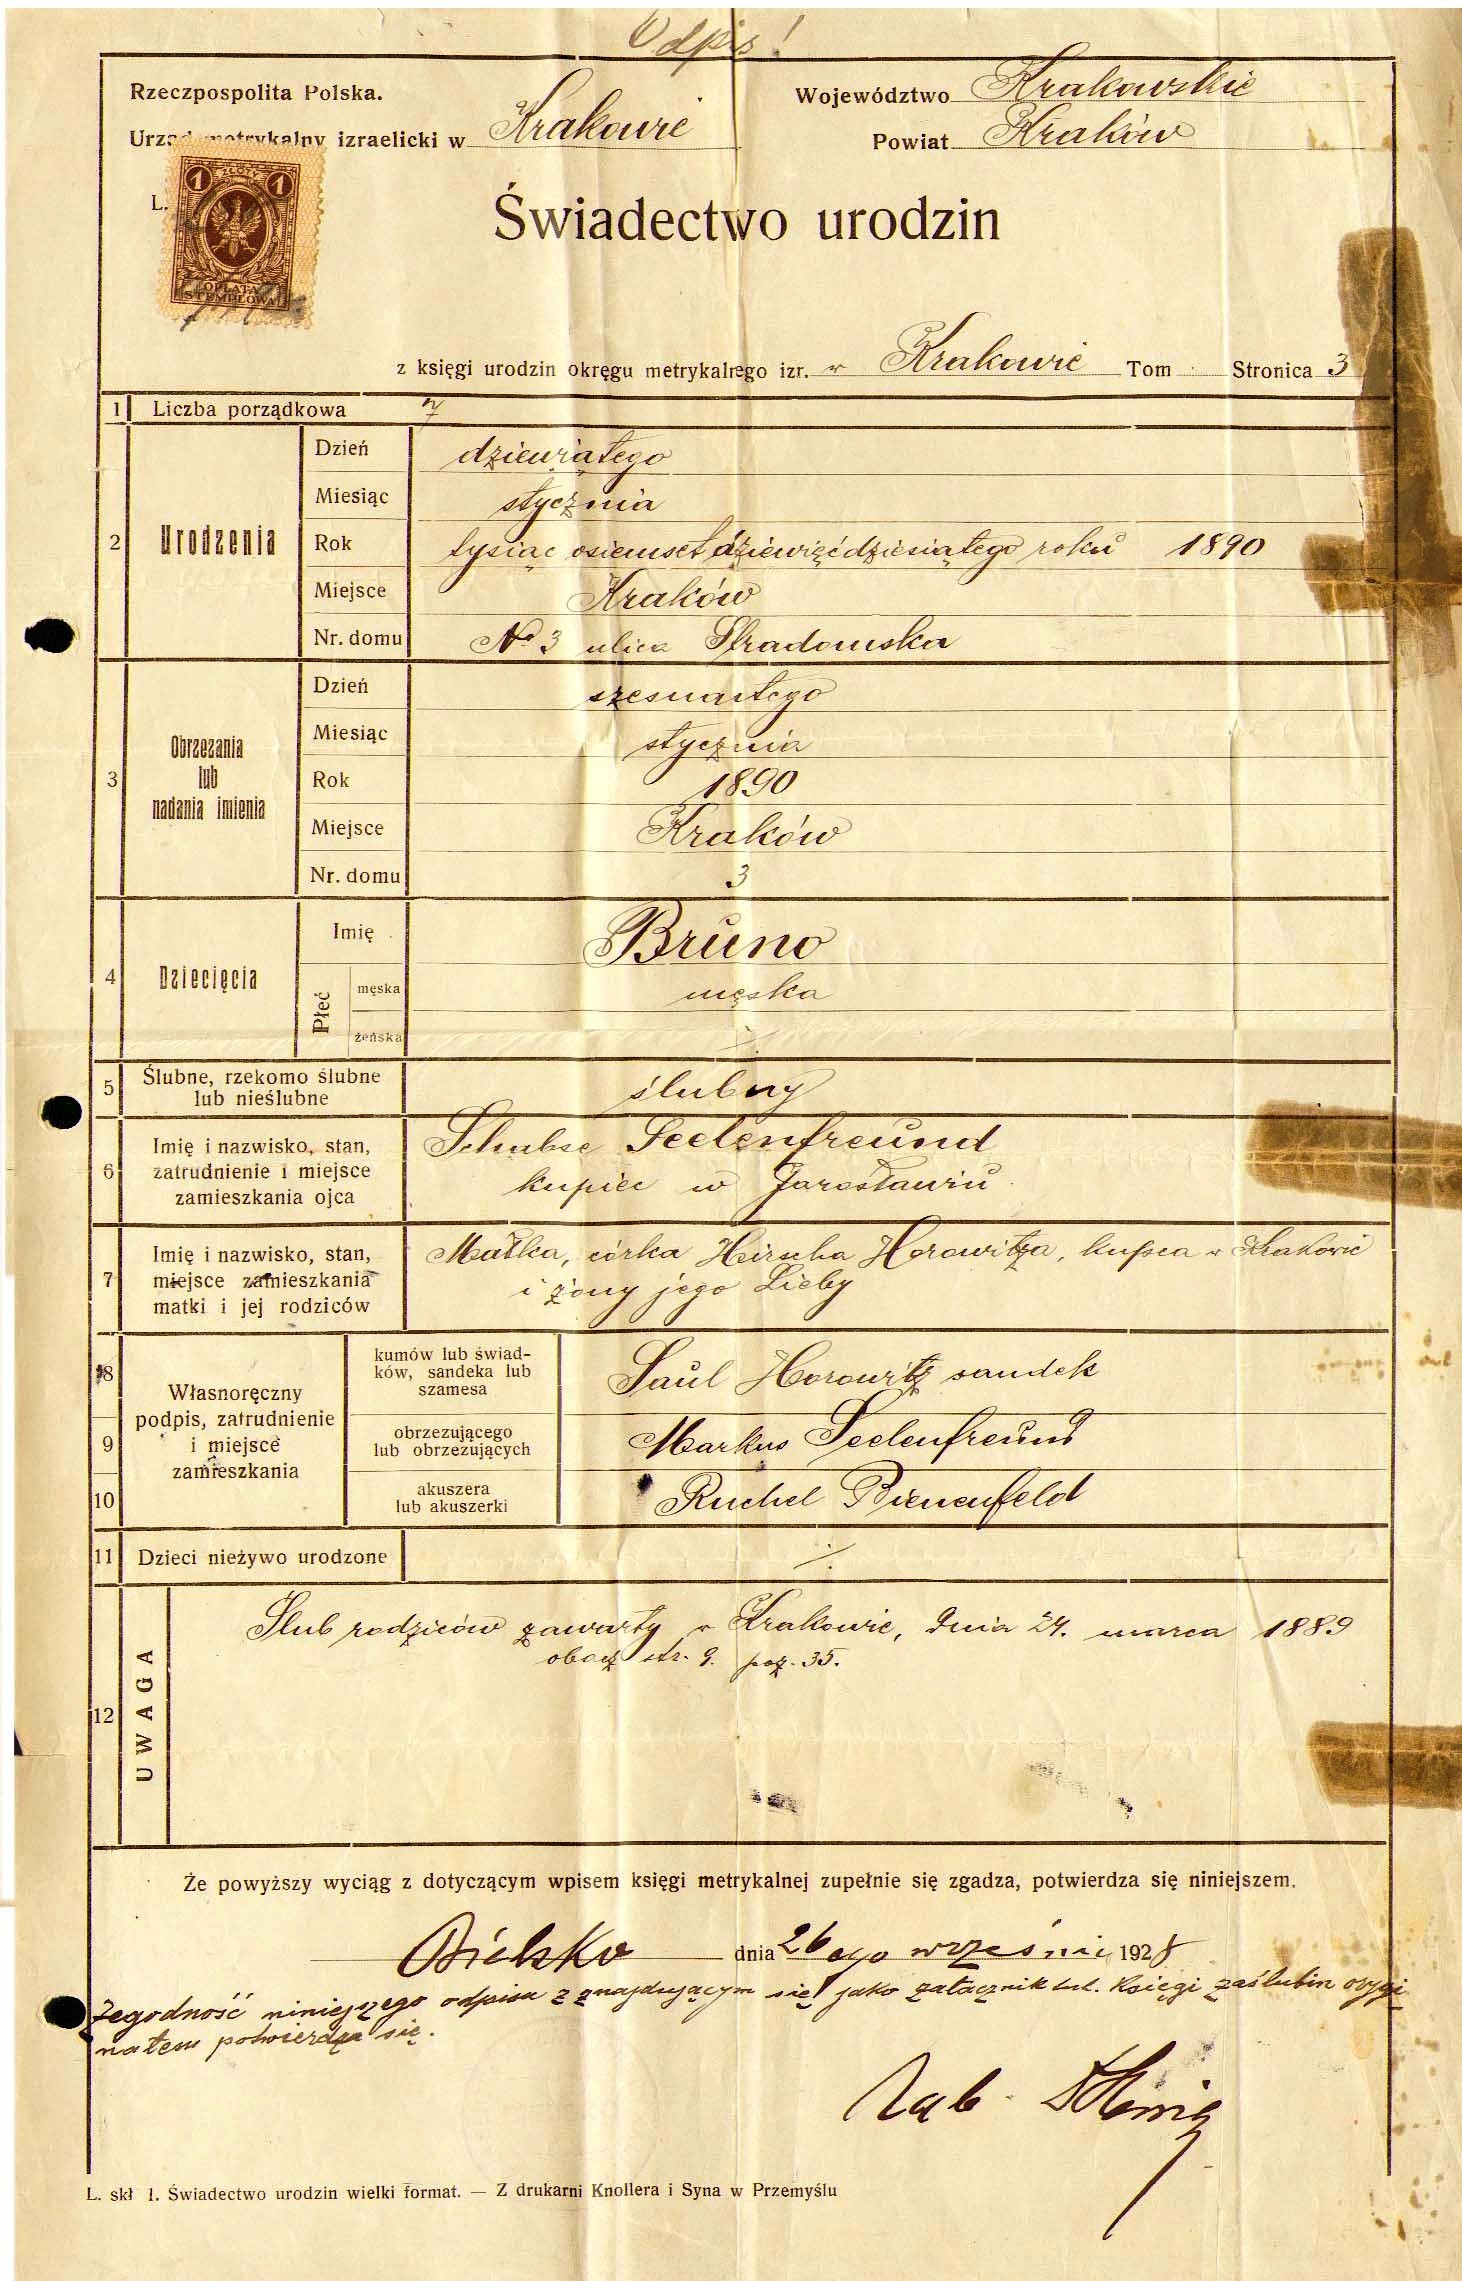 Odpis!
Rzeczpospolita Polska.
Województwo Krakowskie
Urząd metrykalny izraelicki w Krakowie
Powiat Kraków
L.
1 ZŁOTY 1
OPŁATA
STEMPLOWA
Świadectwo urodzin
z księgi urodzin okręgu metrykalnego izr. w Krakowie Tom Stronica 3
1 Liczba porządkowa 7
2 Urodzenia
Dzień dziewiątego
Miesiąc stycznia
Rok tysiąc osiemset dziewięćdziesiątego roku 1890
Miejsce Kraków
Nr. domu No 3 ulica Stradomska
3 Obrzezania
lub
nadania imienia
Dzień szesnastego
Miesiąc stycznia
Rok 1890
Miejsce Kraków
Nr. domu 3
4 Dziecięcia
Imię Bruno
Płeć
męska męska
żeńska ·/.
5 Ślubne, rzekomo ślubne
lub nieślubne
ślubny
6 Imię i nazwisko, stan,
zatrudnienie i miejsce
zamieszkania ojca
Schabse Seelenfreund
kupiec w Jarosławiu
7 Imię i nazwisko, stan,
miejsce zamieszkania
matki i jej rodziców
Małka, córka Hirscha Horowitza, kupca w Krakowie
i żony jego Lieby
Własnoręczny
podpis, zatrudnienie
i miejsce
zamieszkania
8 kumów lub świad-
ków, sandeka lub
szamesa
Saul Horowitz sandek
9 obrzezującego
lub obrzezujących
Markus Seelenfreund
10 akuszera
lub akuszerki
Ruchel Bienenfeld
11 Dzieci nieżywo urodzone ·/.
12 UWAGA
Ślub rodziców zawarty w Krakowie, dnia 24. marca 1889
obacz str. 9. poz. 35.
Że powyższy wyciąg z dotyczącym wpisem księgi metrykalnej zupełnie się zgadza, potwierdza się niniejszem.
Bielsko dnia 26ego wrześni 1928
Zegodność niniejszego odpisu z znajdującym się jako załącznik tut. Księgi zaślubin orygi
nałem potwierdza się.
L. skł 1. Świadectwo urodzin wielki format. — Z drukarni Knollera i Syna w Przemyślu